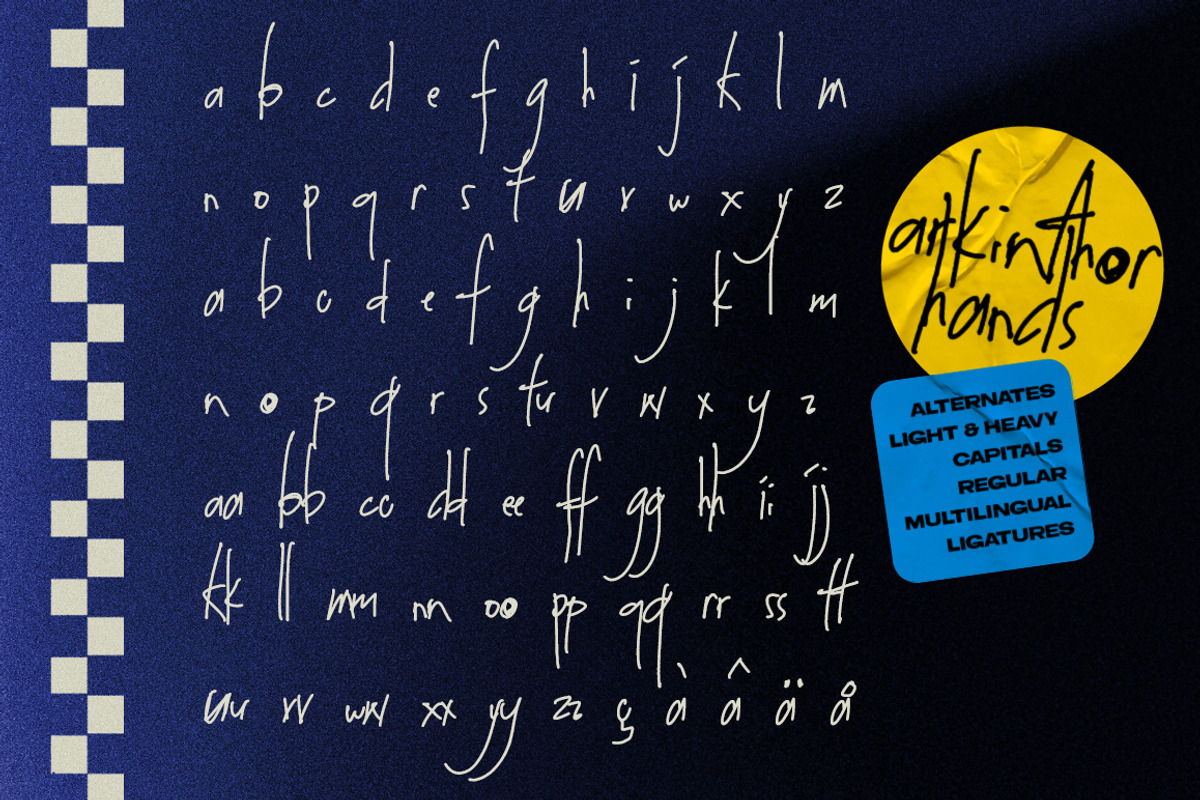 a b c d e f g h i j k l m
n o p q r s t u v w x y z
a b c d e f g h i j k l m
n o p q r s t u v w x y z
aa bb cc dd ee ff gg hh ii jj
kk ll mm nn oo pp qq rr ss tt
uu vv ww xx yy zz ç à â ä å
artkinthor
hands
ALTERNATES
LIGHT & HEAVY
CAPITALS
REGULAR
MULTILINGUAL
LIGATURES